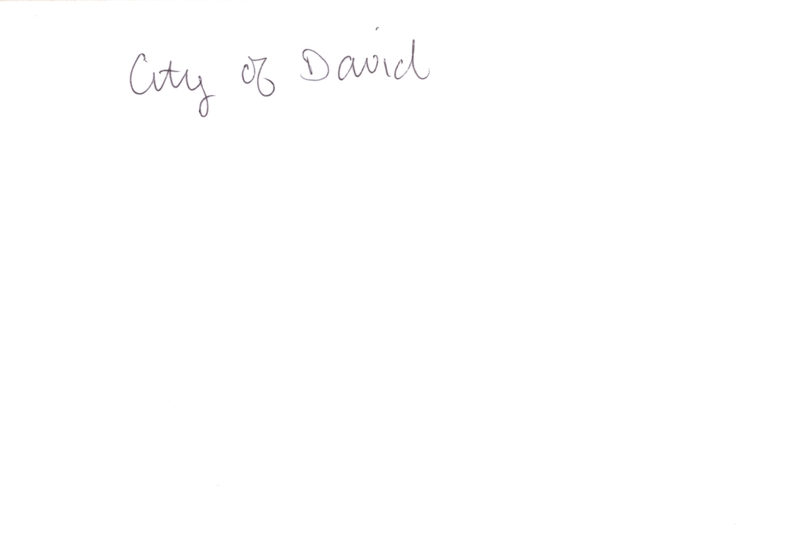 City of David